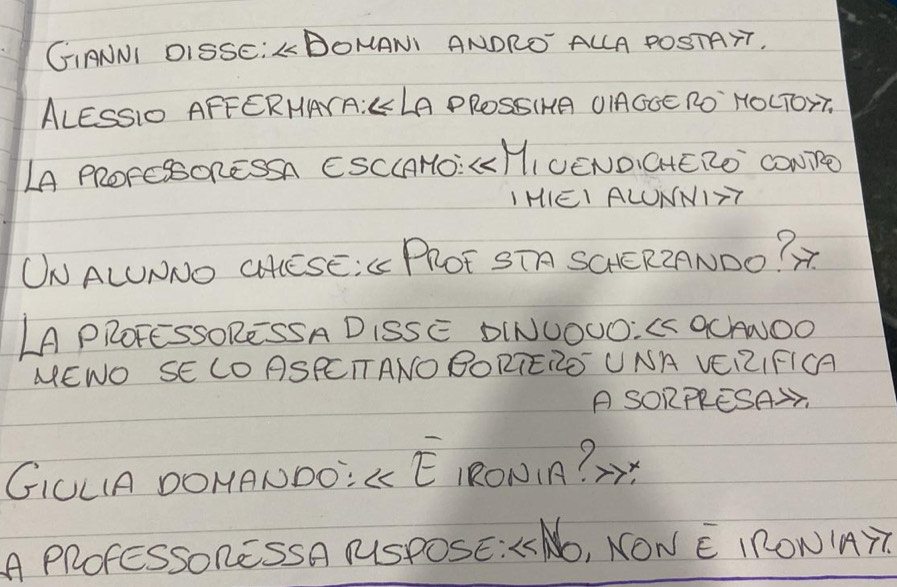 GIANNI DISSE: «DOMANI ANDRÒ ALLA POSTA».
ALESSIO AFFERMAVA: «LA PROSSIMA VIAGGERÒ MOLTO».
LA PROFESSORESSA ESCLAMÒ: «MI VENDICHERÒ CONTRO
I MIEI ALUNNI»
UN ALUNNO CHIESE: «PROF STA SCHERZANDO?».
LA PROFESSORESSA DISSE DINUOVO: «QUANDO
MENO SE LO ASPETTANO PORTERÒ UNA VERIFICA
A SORPRESA».
GIULIA DOMANDÒ: «È IRONIA?».
A PROFESSORESSA RISPOSE: «NO, NON È IRONIA».